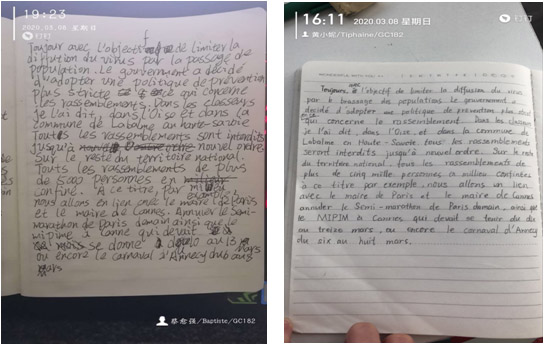 19:23
2020.03.08 星期日
钉钉
Toujour avec l'objectif de limiter la
diffution du virus par la passage de
population. Le gouvernement a décidé
d'adopter une politique de prévention
plus stricte ce qui concerne
les rassemblements. Dans les classeurs
je l'ai dit, dans l'Oise et dans la
commune de Labalme en haute-savoie
Touts les rassemblements sont interdits
jusqu'à nouvel ordre.
Sur le reste du territoire national.
Touts les rassemblements de plus
de 5000 personnes en
confiné. A ce titre, par
exemple
nous allons en lien avec le maire de Paris
et le maire de Cannes. Annuler le semi-
marathon de Paris domain ainsi que le
à Canne qui devait
se donné au 13 Mars
ou encore le carnaval d'Annecy
Mars
蔡愈强/Baptiste/GC182
16:11
2020.03.08 星期日
黄小妮/Tiphaine/GC182
钉钉
Toujours, avec l'objectif de limiter la diffusion du virus
par le brassage des populations. Le gouvernement a
décidé d'adopter une politique de prévention plus strict
qui concerne les rassemblement. Dans les
je l'ai dit, dans l'Oise, et dans la commune de
Labalme en Haute-Savoie tous les rassemblements
seront interdits jusqu'à nouvel ordre. Sur le reste
du territoire national, tous les rassemblements de
plus de cinq mille personnes, a milieu continée
à ce titre par exemple, nous allons en lien
avec le maire de Paris et le maire de Cannes
annuler le Semi-marathon de Paris domain, ainsi que
le MIPIM à Cannes qui devait se tenir du dix
au treize mars, ou encore le carnaval d'Annecy
du six au huit mars.